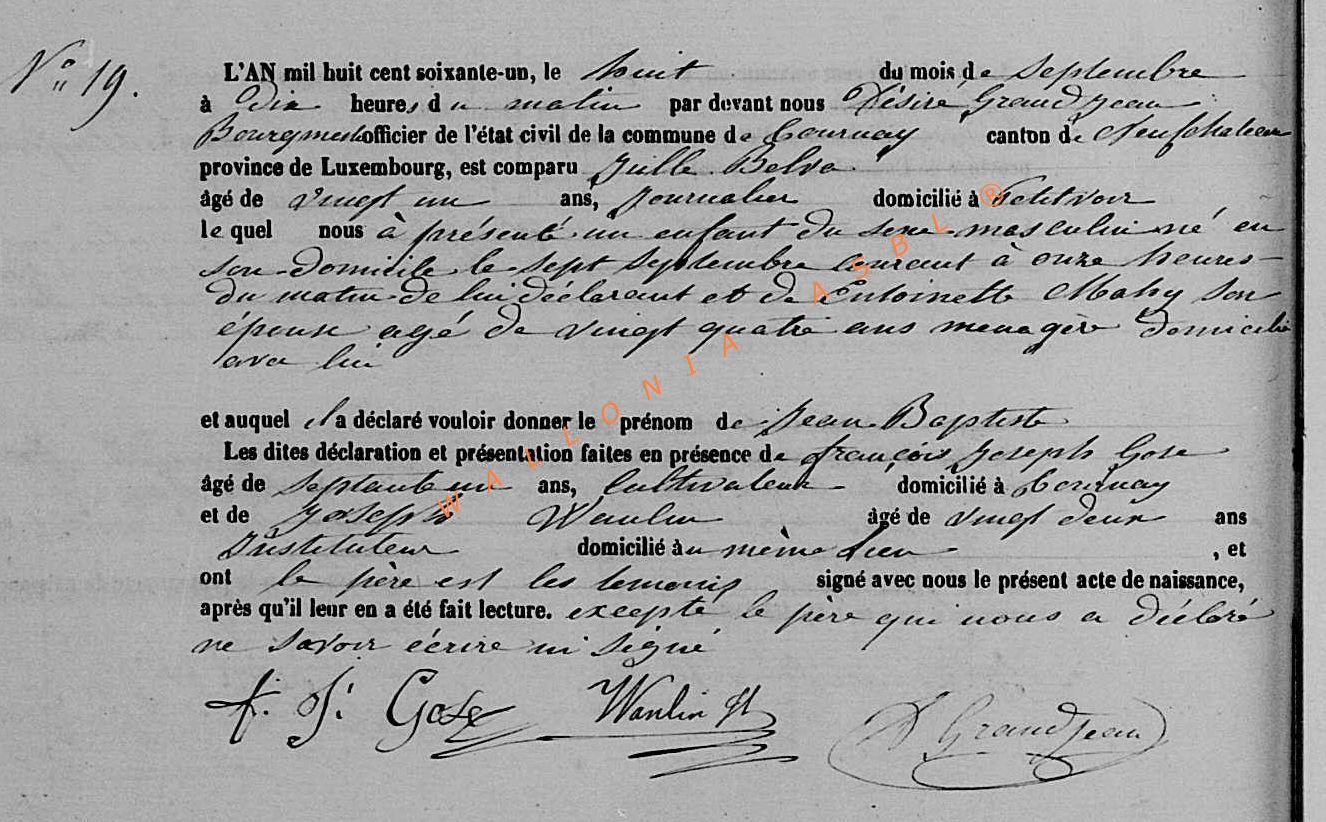 N° 19.
L'AN mil huit cent soixante-un, le huit du mois de Septembre
à dix heures du matin par devant nous Désiré Grandjean
Bourgmestre officier de l'état civil de la commune de Tournay canton de Neufchateau
province de Luxembourg, est comparu Jille Belva
âgé de vingt un ans, journalier domicilié à Petitvoir
le quel nous à présenté un enfant du sexe masculin né en
son domicile le sept Septembre courant à onze heures
du matin de lui déclarant et de Entoinette Mahy son
épouse agé de vingt quatre ans menagère domicilié
avec lui
et auquel il a déclaré vouloir donner le prénom de Jean Baptiste
Les dites déclaration et présentation faites en présence de françois Joseph Gose
âgé de Septante un ans, Cultivateur domicilié à Tournay
et de Joseph Wanlin âgé de vingt deux ans
Instituteur domicilié au même lieu, et
ont le père est les temouis signé avec nous le présent acte de naissance,
après qu'il leur en a été fait lecture. excepté le père qui nous a déclaré
ne savoir écrire ni signé
f. J. Gose Wanlin Jh D Grandjean
WALLONIA ASBL ®